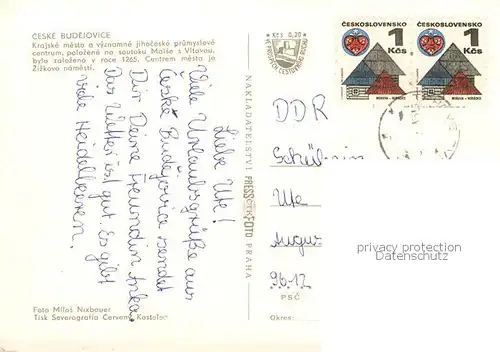 ČESKÉ BUDĚJOVICE
Krajské město a významné jihočeské průmyslové
centrum, položená na soutoku Malše s Vltavou,
bylo založeno v roce 1265. Centrem města je
Žižkovo náměstí.
Liebe Ute!
Viele Urlaubsgrüße aus
České Budějovice sendet
Dir Deine Freundin Anka.
Das Wetter ist gut. Es gibt
viele Heidelbeeren.
Foto Miloš Nixbauer
Tisk Severografia Červený Kostelec
NAKLADATELSTVÍ PRESSFOTO PRAHA
Kčs 0,20
VE PROSPĚCH CESTOVNÍHO RUCHU
ČESKOSLOVENSKO
1
Kčs
ČESKOSLOVENSKO
1
Kčs
DDR
Schülerin
Ute
Augus
9612
PSČ
Okres:
privacy protection
Datenschutz